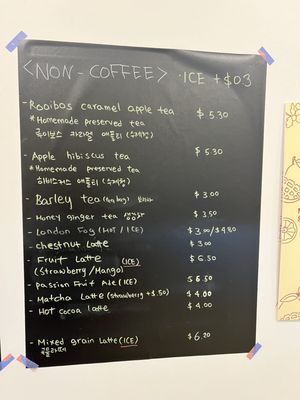 <NON-COFFEE> ·ICE +$0.3
- Rooibos caramel apple tea $5.30
* Homemade preserved tea
루이보스 카라멜 애플티 (수제청)
- Apple hibiscus tea $5.30
* Homemade preserved tea
히비스커스 애플티 (수제청)
- Barley tea $3.00
- Honey ginger tea 생강차 $3.50
- London Fog (HOT / ICE) $3.00/$4.80
- chestnut Latte $3.00
- Fruit Latte (ICE) $6.50
(Strawberry/Mango)
- Passion Fruit Ade (ICE) $6.50
- Matcha Latte (strawberry +$.50) $4.00
- Hot cocoa latte $4.00
- Mixed grain Latte (ICE) $6.20
곡물라떼